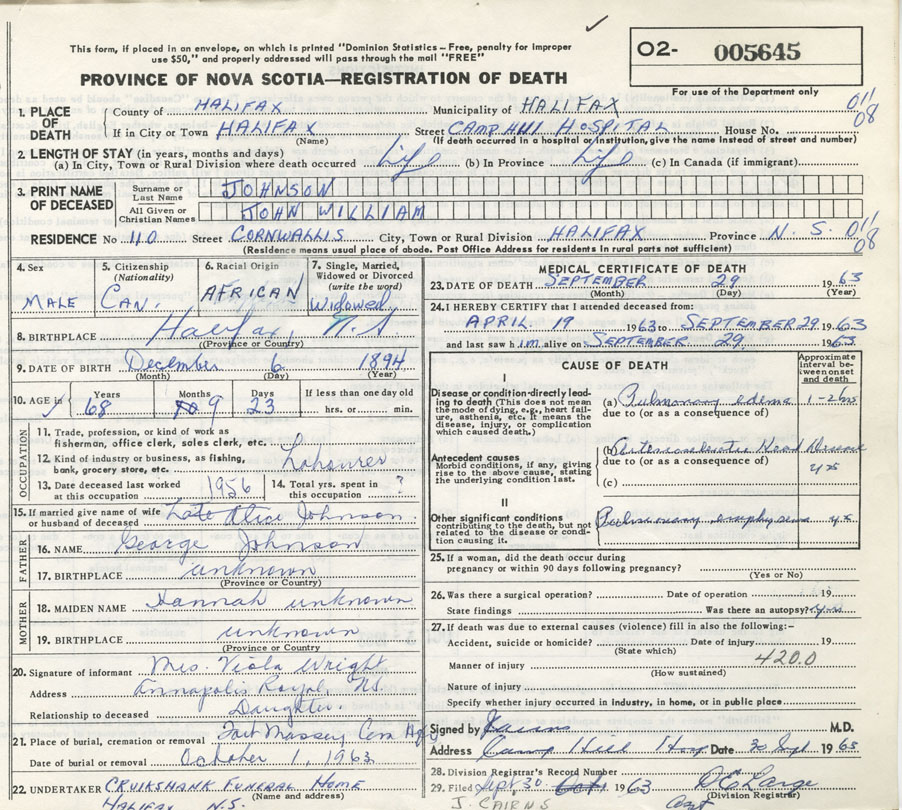 This form, if placed in an envelope, on which is printed "Dominion Statistics - Free, penalty for improper
use $50," and properly addressed will pass through the mail "FREE"
O2- 005645
PROVINCE OF NOVA SCOTIA—REGISTRATION OF DEATH
For use of the Department only
1. PLACE OF DEATH { County of HALIFAX Municipality of HALIFAX 011
If in City or Town HALIFAX Street CAMP HILL HOSPITAL House No. 08
(Name) (If death occurred in a hospital or institution, give the name instead of street and number)
2. LENGTH OF STAY (in years, months and days)
(a) In City, Town or Rural Division where death occurred Life (b) In Province Life (c) In Canada (if immigrant)
3. PRINT NAME OF DECEASED { Surname or Last Name JOHNSON
All Given or Christian Names JOHN WILLIAM
RESIDENCE No 110 Street CORNWALLIS City, Town or Rural Division HALIFAX Province N. S. 011
08
(Residence means usual place of abode. Post Office Address for residents in rural parts not sufficient)
4. Sex MALE
5. Citizenship (Nationality) CAN.
6. Racial Origin AFRICAN
7. Single, Married, Widowed or Divorced (write the word) Widowed
8. BIRTHPLACE Halifax, N.S
(Province or Country)
9. DATE OF BIRTH December 6 1894
(Month) (Day) (Year)
10. AGE in Years 68 Months 9 Days 23 If less than one day old hrs. or min.
OCCUPATION
11. Trade, profession, or kind of work as
fisherman, office clerk, sales clerk, etc.
12. Kind of industry or business, as fishing,
bank, grocery store, etc. Labourer
13. Date deceased last worked at this occupation 1956
14. Total yrs. spent in this occupation ?
15. If married give name of wife or husband of deceased Late Alice Johnson
FATHER
16. NAME George Johnson
17. BIRTHPLACE unknown
(Province or Country)
MOTHER
18. MAIDEN NAME Hannah unknown
19. BIRTHPLACE unknown
(Province or Country)
20. Signature of informant Mrs. Viola Wright
Address Annapolis Royal, N.S.
Relationship to deceased Daughter
21. Place of burial, cremation or removal Fort Massey Cem Hfx
Date of burial or removal October 1, 1963
22. UNDERTAKER CRUIKSHANK FUNERAL HOME
HALIFAX N.S. (Name and address)
MEDICAL CERTIFICATE OF DEATH
23. DATE OF DEATH SEPTEMBER 29 1963
(Month) (Day) (Year)
24. I HEREBY CERTIFY that I attended deceased from:
APRIL 19 1963 to SEPTEMBER 29 1963
and last saw him alive on SEPTEMBER 29 1963
CAUSE OF DEATH
Approximate interval between onset and death
I
Disease or condition directly leading to death (This does not mean
the mode of dying, e.g., heart failure, asthenia, etc. It means the
disease, injury, or complication
which caused death.)
(a) Pulmonary edema 1-2 hrs
due to (or as a consequence of)
Antecedent causes
Morbid conditions, if any, giving
rise to the above cause, stating
the underlying condition last.
(b) Arteriosclerotic Heart Disease yrs
due to (or as a consequence of)
(c)
II
Other significant conditions
contributing to the death, but not
related to the disease or condition causing it.
Pulmonary emphysema yrs
25. If a woman, did the death occur during
pregnancy or within 90 days following pregnancy?
(Yes or No)
26. Was there a surgical operation? Date of operation 19
State findings Was there an autopsy? yes
27. If death was due to external causes (violence) fill in also the following:-
Accident, suicide or homicide? Date of injury 19
(State which)
Manner of injury 420.0
(How sustained)
Nature of injury
Specify whether injury occurred in industry, in home, or in public place
Signed by Cairns M.D.
Address Camp Hill Hosp Date 30 Sept 1963
28. Division Registrar's Record Number
29. Filed Sept. 30 1963
(Division Registrar)
J. CAIRNS